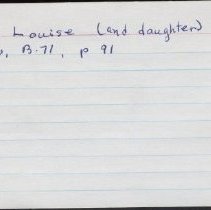 Louise (and daughter)
, B.71, p 91